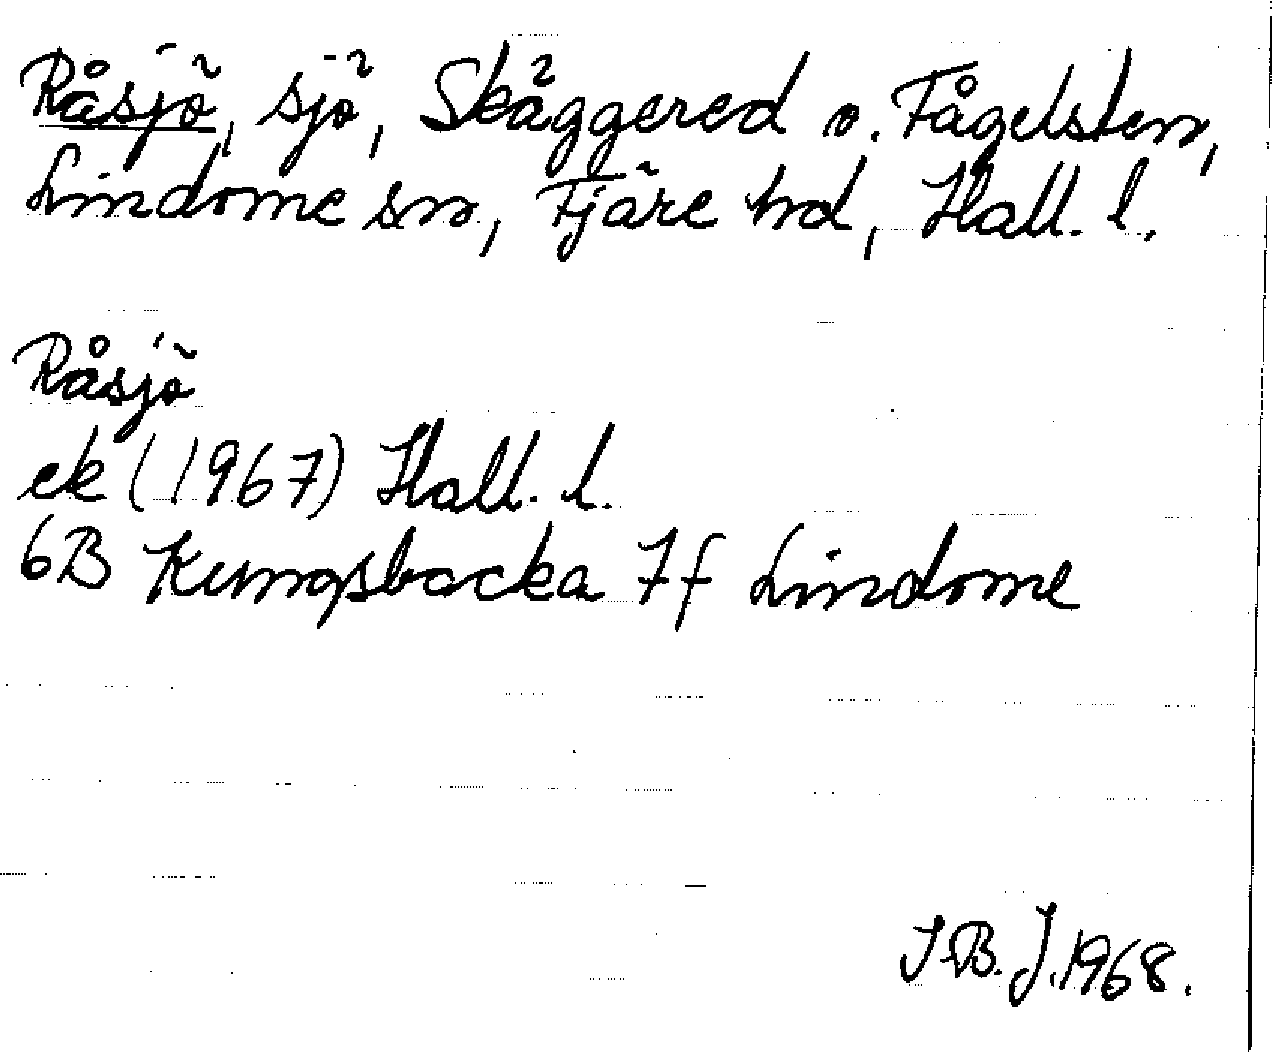 Råsjö, sjö, Skäggered o. Fågelsten,
Lindome sn, Fjäre hd, Hall. l.
Råsjö
ek (1967) Hall. l.
6B Kungsbacka 7f Lindome
I.B.J. 1968.